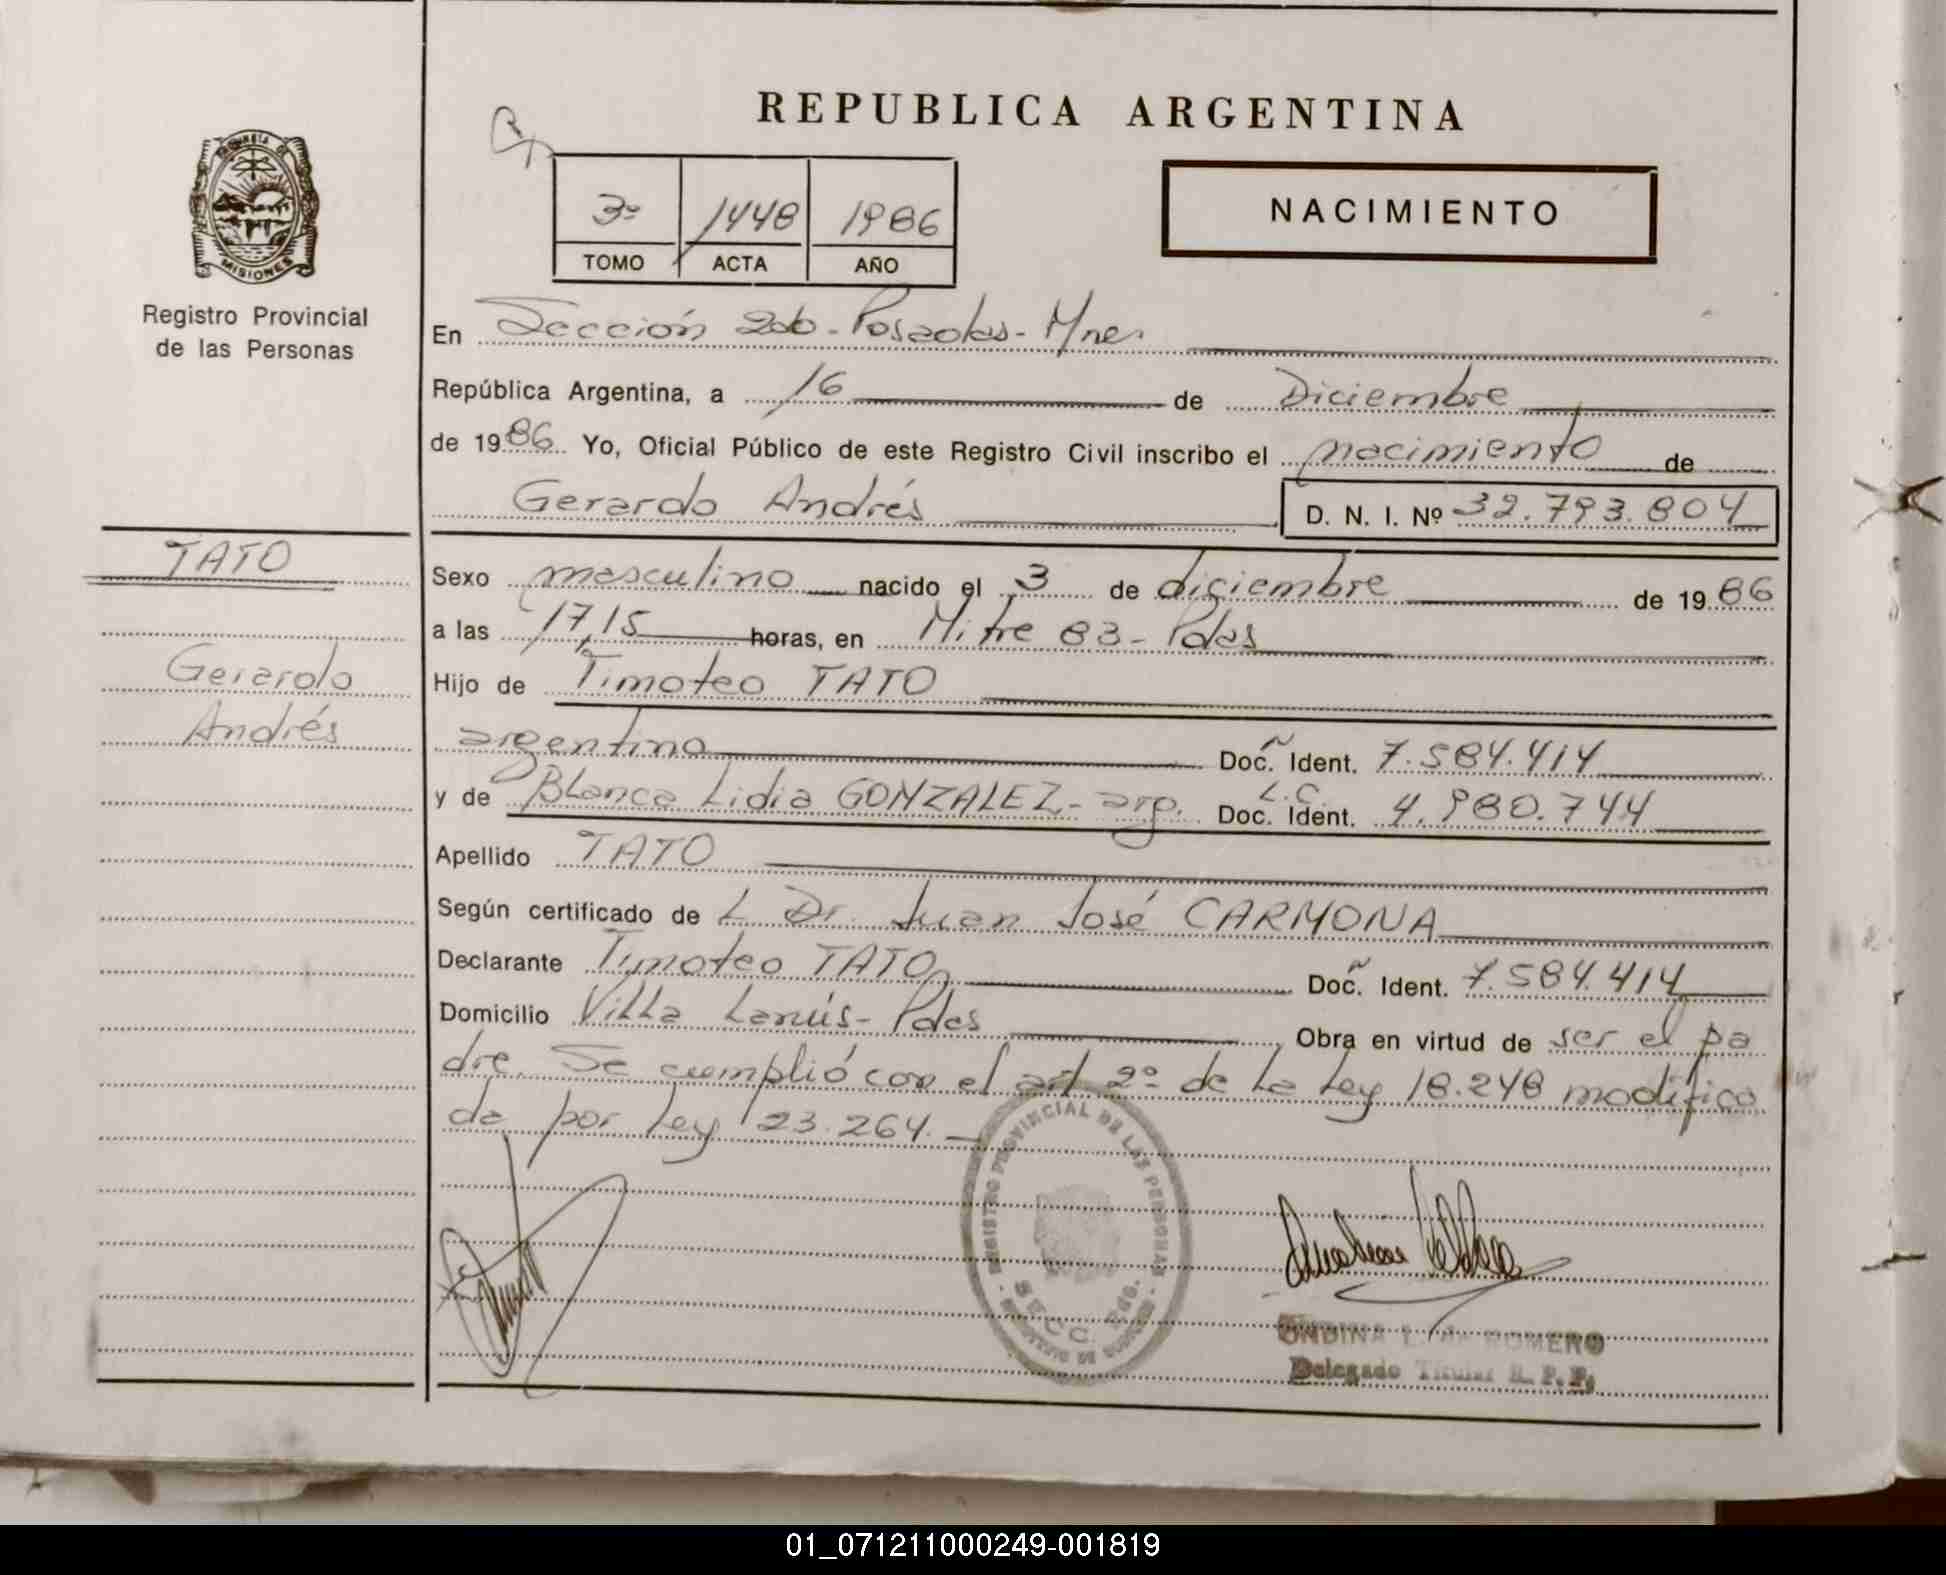 REPUBLICA ARGENTINA
PROVINCIA DE
MISIONES
Registro Provincial
de las Personas
3º 1448 1986
TOMO ACTA AÑO
NACIMIENTO
En Sección 2da - Posadas - Mnes
República Argentina, a 16 de Diciembre
de 1986 Yo, Oficial Público de este Registro Civil inscribo el nacimiento de
Gerardo Andrés D. N. I. Nº 32.793.804
TATO
Gerardo
Andrés
Sexo masculino nacido el 3 de diciembre de 1986
a las 17,15 horas, en Mitre 83 - Pdas
Hijo de Timoteo TATO
argentino Doc. Ident. 7.584.414
y de Blanca Lidia GONZALEZ - arg. L.C. Doc. Ident. 4.980.744
Apellido TATO
Según certificado de L Dr. Juan José CARMONA
Declarante Timoteo TATO Doc. Ident. 7.584.414
Domicilio Villa Lanús - Pdas Obra en virtud de ser el pa
dre. Se cumplió con el art 2º de la Ley 18.248 modifica
da por Ley 23.264.
REGISTRO PROVINCIAL DE LAS PERSONAS
SECC. 2da.
ONDINA L. de ROMERO
Delegado Titular R. P. P.
01_071211000249-001819